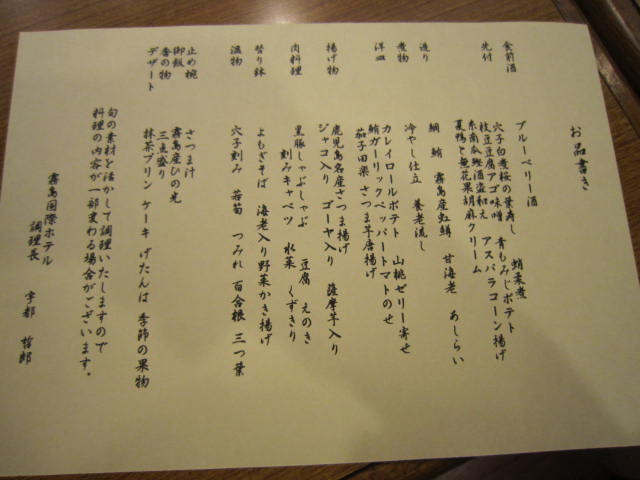 お品書き
食前酒 ブルーベリー酒
先付 穴子白煮桜の葉寿し 蛸柔煮
枝豆豆腐アゴ味噌 青もみじポテト
糸南瓜鰹酒盗和え アスパラコーン揚げ
夏鴨と無花果胡麻クリーム
造り 鯛 鮪 霧島産虹鱒 甘海老 あしらい
煮物 冷やし仕立 養老流し
洋皿 カレイロールポテト 山桃ゼリー寄せ
鮪ガーリックペッパートマトのせ
茄子田楽 さつま芋唐揚げ
揚げ物 鹿児島名産さつま揚げ
ジャコ入り ゴーヤ入り 薩摩芋入り
肉料理 黒豚しゃぶしゃぶ 豆腐 えのき
刻みキャベツ 水菜 くずきり
替り鉢 よもぎそば 海老入り野菜かき揚げ
温物 穴子刻み 若筍 つみれ 百合根 三つ葉
止め椀 さつま汁
御飯 霧島産ひの光
香の物 三点盛り
デザート 抹茶プリン ケーキ げたんは 季節の果物
旬の素材を活かして調理いたしますので
料理の内容が一部変わる場合がございます。
霧島国際ホテル
調理長 宇都 哲郎